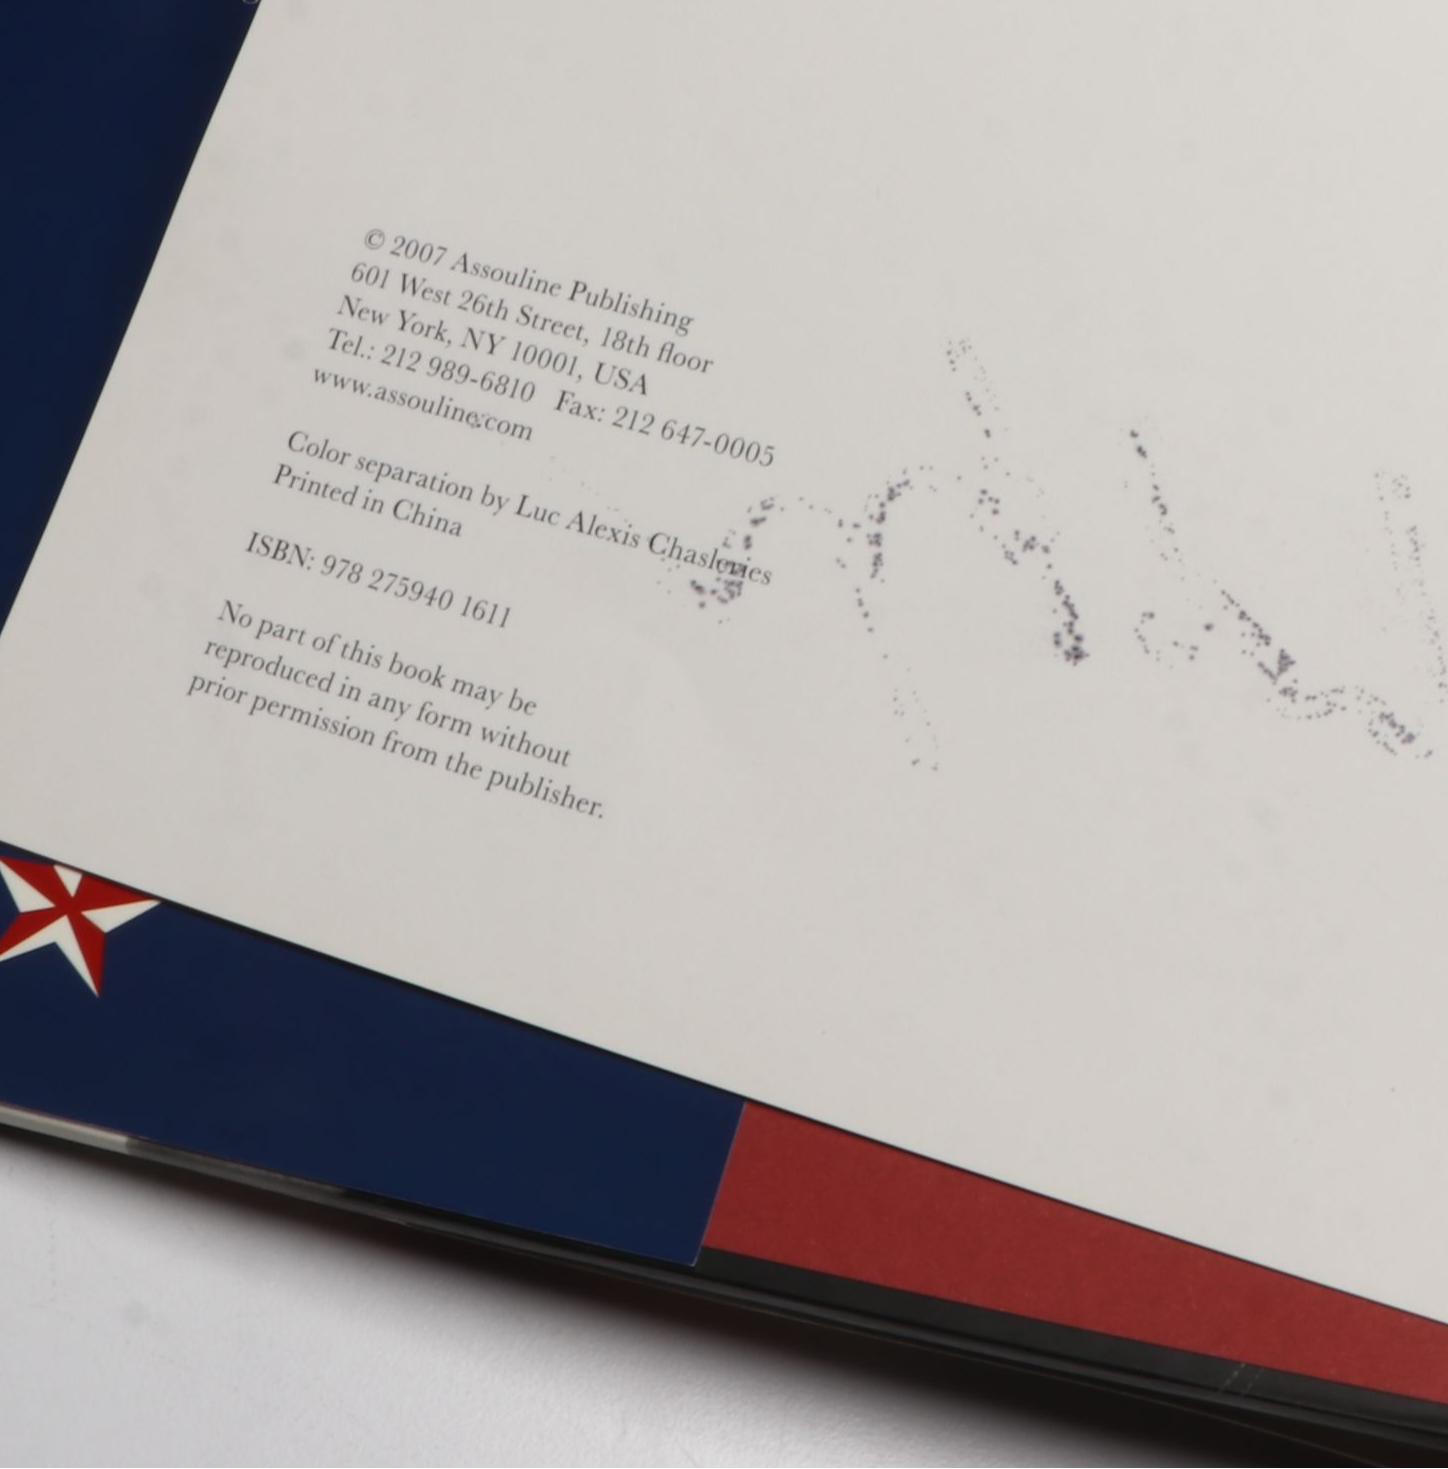 © 2007 Assouline Publishing
601 West 26th Street, 18th floor
New York, NY 10001, USA
Tel.: 212 989-6810 Fax: 212 647-0005
www.assouline.com
Color separation by Luc Alexis Chasleries
Printed in China
ISBN: 978 275940 1611
No part of this book may be
reproduced in any form without
prior permission from the publisher.